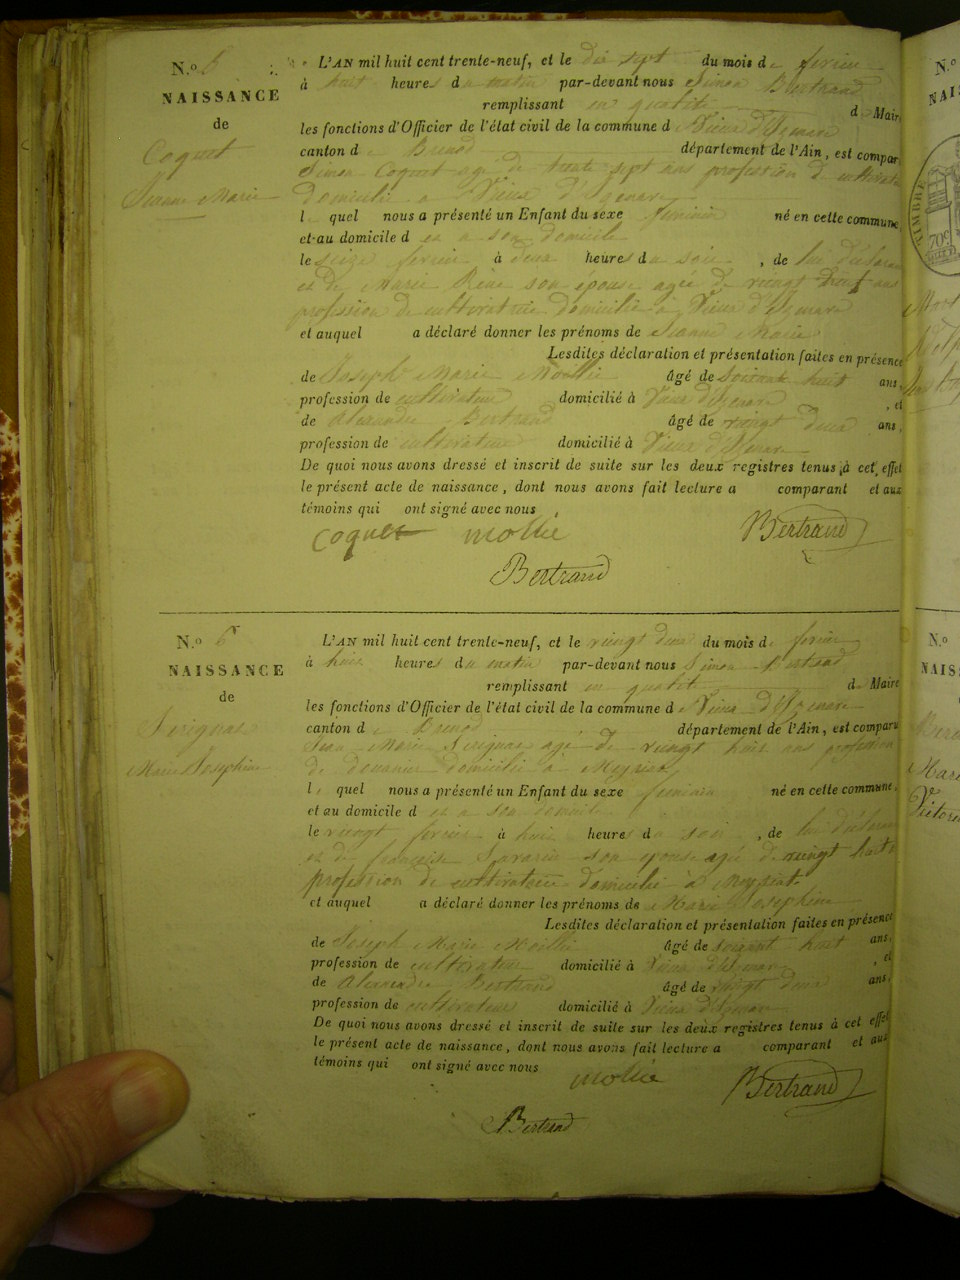 N.º 5
NAISSANCE
de
Coquet
Jeanne Marie
L'AN mil huit cent trente-neuf, et le dix sept du mois de fevrier
à huit heures du matin par-devant nous Simon Bertrand
remplissant en qualité de Maire
les fonctions d'Officier de l'état civil de la commune de Vieux d'Izenave
canton de Brenod département de l'Ain, est compar
Simon Coquet agé de trente sept ans profession de cultivate
domicilié a Vieux d'Izenave
lequel nous a présenté un Enfant du sexe feminin né en cette commune,
et au domicile d a son domicile
le seize fevrier à deux heures du soir, de lui déclaran
et de Marie Rene son épouse agée de vingt neuf ans
profession de cultivatrice domicilié à Vieux d'Izenave
et auquel a déclaré donner les prénoms de Jeanne Marie
Lesdites déclaration et présentation faites en présence
de Joseph Marie Mollie âgé de soixante huit ans,
profession de cultivateur domicilié à Vieux d'Izenave, et
de Alexandre Bertrand âgé de vingt deux ans,
profession de cultivateur domicilié à Vieux d'Izenave
De quoi nous avons dressé et inscrit de suite sur les deux registres tenus à cet effet
le présent acte de naissance, dont nous avons fait lecture a comparant et aux
témoins qui ont signé avec nous
Coquet mollie Bertrand
Bertrand
N.º 6
NAISSANCE
de
Marie Josephine
L'AN mil huit cent trente-neuf, et le vingt deux du mois de fevrier
à huit heures du matin par-devant nous Simon Bertrand
remplissant en qualité de Maire
les fonctions d'Officier de l'état civil de la commune de Vieux d'Izenave
canton de Brenod département de l'Ain, est comparu
Jean Marie agé de vingt huit ans profession
de douanier domicilié à Meyriat
lequel nous a présenté un Enfant du sexe feminin né en cette commune,
et au domicile d a son domicile
le vingt fevrier à huit heures du soir, de lui déclaran
et de françoise Savarin son epouse agée de vingt huit
profession de cultivatrice domicilié à Meyriat
et auquel a déclaré donner les prénoms de Marie Josephine
Lesdites déclaration et présentation faites en présence
de Joseph Marie Mollie âgé de soixant huit ans,
profession de cultivateur domicilié à Vieux d'Izenave, et
de Alexandre Bertrand âgé de vingt deux ans,
profession de cultivateur domicilié à Vieux d'Izenave
De quoi nous avons dressé et inscrit de suite sur les deux registres tenus à cet effet
le présent acte de naissance, dont nous avons fait lecture a comparant et aux
témoins qui ont signé avec nous
mollie Bertrand
Bertrand
N.º
NAIS
TIMBRE
70c
N.º
NAISS
Mari
Victor